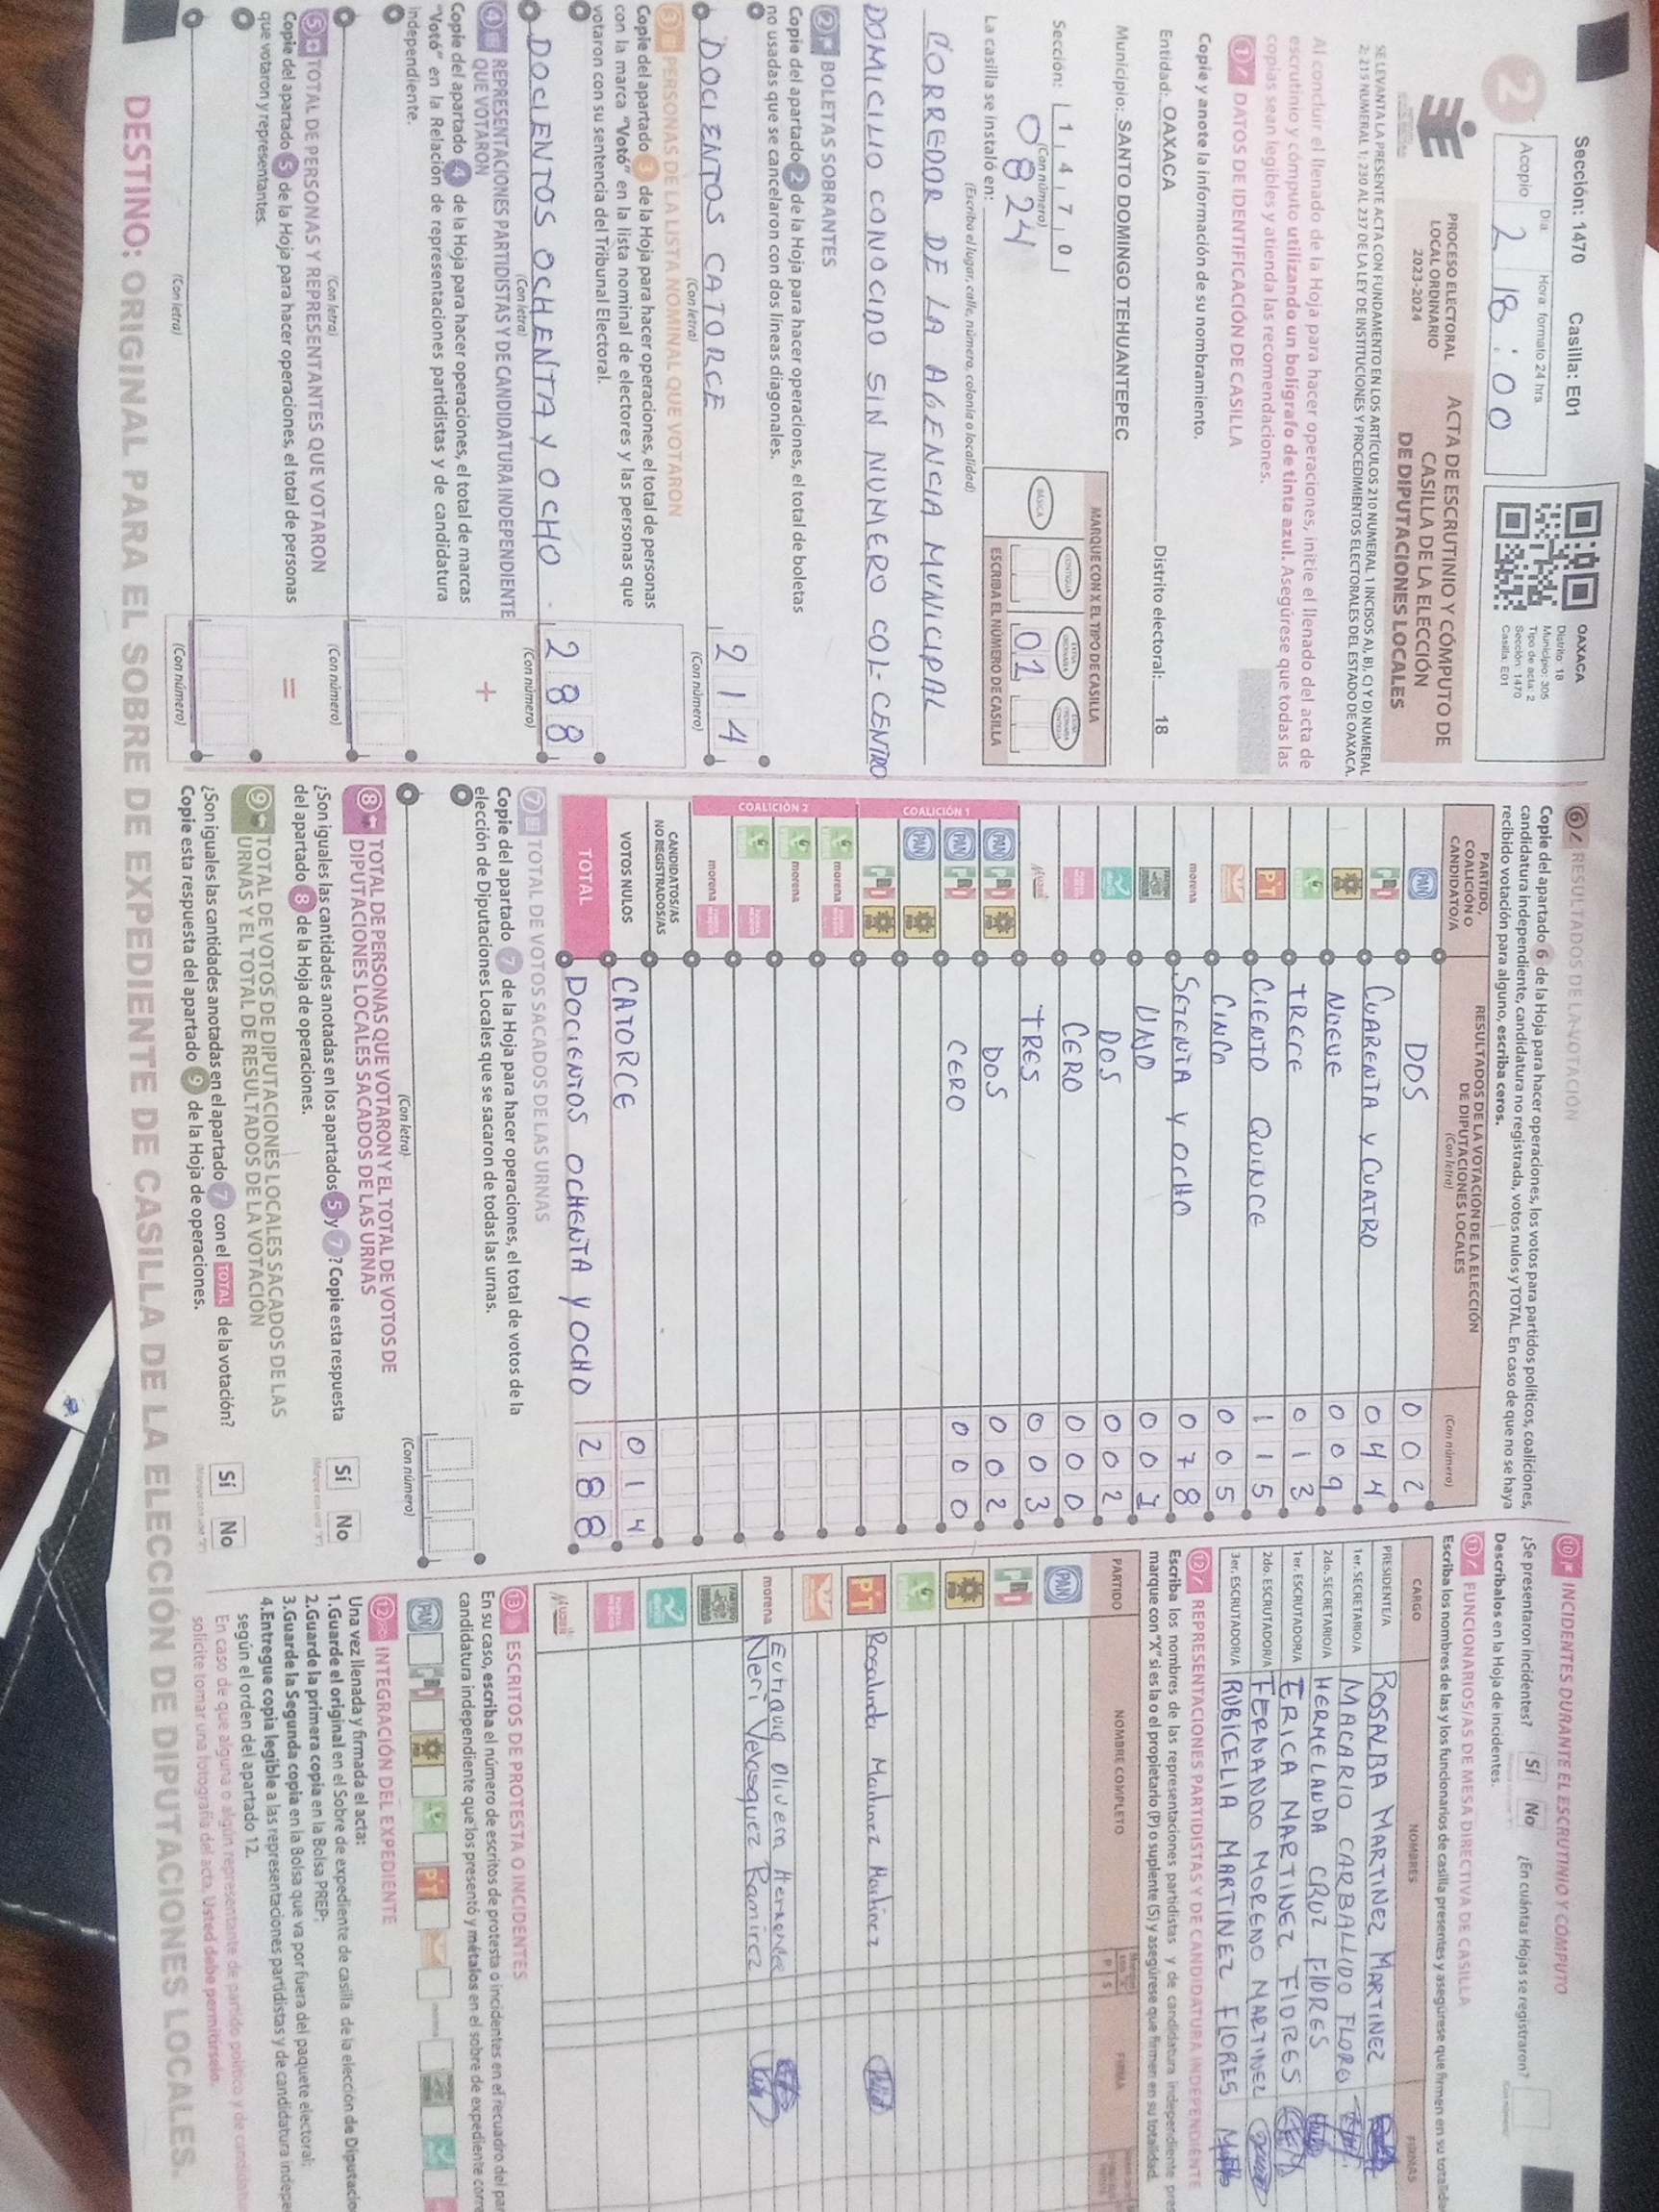 Sección: 1470 Casilla: E01
2
Acopio
Día
Hora: formato 24 hrs
2 18:00
OAXACA
Distrito: 18
Municipio: 305
Tipo de acta: 2
Sección: 1470
Casilla: E01
PROCESO ELECTORAL
LOCAL ORDINARIO
2023-2024
ACTA DE ESCRUTINIO Y CÓMPUTO DE
CASILLA DE LA ELECCIÓN
DE DIPUTACIONES LOCALES
SE LEVANTA LA PRESENTE ACTA CON FUNDAMENTO EN LOS ARTÍCULOS 210 NUMERAL 1 INCISOS A), B), C) Y D) NUMERAL
2; 215 NUMERAL 1; 230 AL 237 DE LA LEY DE INSTITUCIONES Y PROCEDIMIENTOS ELECTORALES DEL ESTADO DE OAXACA.
Al concluir el llenado de la Hoja para hacer operaciones, inicie el llenado del acta de
escrutinio y cómputo utilizando un bolígrafo de tinta azul. Asegúrese que todas las
copias sean legibles y atienda las recomendaciones.
1 DATOS DE IDENTIFICACIÓN DE CASILLA
Copie y anote la información de su nombramiento.
Entidad: OAXACA Distrito electoral: 18
Municipio: SANTO DOMINGO TEHUANTEPEC
Sección: 1 4 7 0
(Con número)
0824
MARQUE CON X EL TIPO DE CASILLA
BÁSICA
CONTIGUA
01
ESCRIBA EL NÚMERO DE CASILLA
La casilla se instaló en:
(Escriba el lugar, calle, número, colonia o localidad)
CORREDOR DE LA AGENCIA MUNICIPAL
DOMICILIO CONOCIDO SIN NUMERO COL- CENTRO
2 BOLETAS SOBRANTES
Copie del apartado 2 de la Hoja para hacer operaciones, el total de boletas
no usadas que se cancelaron con dos líneas diagonales.
DOCIENTOS CATORCE 214
(Con letra) (Con número)
3 PERSONAS DE LA LISTA NOMINAL QUE VOTARON
Copie del apartado 3 de la Hoja para hacer operaciones, el total de personas
con la marca "Votó" en la lista nominal de electores y las personas que
votaron con su sentencia del Tribunal Electoral.
DOCIENTOS OCHENTA Y OCHO 288
(Con letra) (Con número)
4 REPRESENTACIONES PARTIDISTAS Y DE CANDIDATURA INDEPENDIENTE
QUE VOTARON
+
Copie del apartado 4 de la Hoja para hacer operaciones, el total de marcas
"Votó" en la Relación de representaciones partidistas y de candidatura
independiente.
(Con letra) (Con número)
5 TOTAL DE PERSONAS Y REPRESENTANTES QUE VOTARON
=
Copie del apartado 5 de la Hoja para hacer operaciones, el total de personas
que votaron y representantes.
(Con letra) (Con número)
6 RESULTADOS DE LA VOTACIÓN
Copie del apartado 6 de la Hoja para hacer operaciones, los votos para partidos políticos, coaliciones,
candidatura independiente, candidatura no registrada, votos nulos y TOTAL. En caso de que no se haya
recibido votación para alguno, escriba ceros.
PARTIDO,
COALICIÓN O
CANDIDATO/A
RESULTADOS DE LA VOTACIÓN DE LA ELECCIÓN
DE DIPUTACIONES LOCALES
(Con letra)
(Con número)
PAN DOS 002
PRI CUARENTA Y CUATRO 044
NUEVE 009
TRECE 013
PT CIENTO QUINCE 115
CINCO 005
morena SETENTA Y OCHO 078
UNO 001
DOS 002
CERO 000
TRES 003
COALICIÓN 1
PAN PRI DOS 002
PAN PRI CERO 000
PAN
PRI
COALICIÓN 2
morena
morena
morena
CANDIDATOS/AS
NO REGISTRADOS/AS
VOTOS NULOS CATORCE 014
TOTAL DOCIENTOS OCHENTA Y OCHO 288
7 TOTAL DE VOTOS SACADOS DE LAS URNAS
Copie del apartado 7 de la Hoja para hacer operaciones, el total de votos de la
elección de Diputaciones Locales que se sacaron de todas las urnas.
(Con letra) (Con número)
8 TOTAL DE PERSONAS QUE VOTARON Y EL TOTAL DE VOTOS DE
DIPUTACIONES LOCALES SACADOS DE LAS URNAS
¿Son iguales las cantidades anotadas en los apartados 5 y 7? Copie esta respuesta
del apartado 8 de la Hoja de operaciones.
Sí No
9 TOTAL DE VOTOS DE DIPUTACIONES LOCALES SACADOS DE LAS
URNAS Y EL TOTAL DE RESULTADOS DE LA VOTACIÓN
¿Son iguales las cantidades anotadas en el apartado 7 con el TOTAL de la votación?
Copie esta respuesta del apartado 9 de la Hoja de operaciones.
Sí No
10 INCIDENTES DURANTE EL ESCRUTINIO Y CÓMPUTO
¿Se presentaron incidentes? Sí No ¿En cuántas Hojas se registraron?
Descríbalos en la Hoja de incidentes.
11 FUNCIONARIOS/AS DE MESA DIRECTIVA DE CASILLA
Escriba los nombres de las y los funcionarios de casilla presentes y asegúrese que firmen en su
CARGO NOMBRES FIRMAS
PRESIDENTE/A ROSALBA MARTINEZ MARTINEZ
1er. SECRETARIO/A MACARIO CARBALLIDO FLORO
2do. SECRETARIO/A HERMELANDA CRUZ FLORES
1er. ESCRUTADOR/A ERICA MARTINEZ FLORES
2do. ESCRUTADOR/A FERNANDO MORENO MARTINEZ
3er. ESCRUTADOR/A RUBICELIA MARTINEZ FLORES
12 REPRESENTACIONES PARTIDISTAS Y DE CANDIDATURA INDEPENDIENTE
Escriba los nombres de las representaciones partidistas y de candidatura independiente
marque con "X" si es la o el propietario (P) o suplente (S) y asegúrese que firmen en su totalidad.
PARTIDO NOMBRE COMPLETO P S FIRMA
PAN
PRI
PT Rosalinda Martinez Martinez
morena Eutiquio Olivera Hernandez
Neri Velasquez Ramirez
13 ESCRITOS DE PROTESTA O INCIDENTES
En su caso, escriba el número de escritos de protesta o incidentes en el recuadro del
candidatura independiente que los presentó y métalos en el sobre de expediente
PAN PRI PT
12 INTEGRACIÓN DEL EXPEDIENTE
Una vez llenada y firmada el acta:
1.Guarde el original en el Sobre de expediente de casilla de la elección de
2.Guarde la primera copia en la Bolsa PREP;
3.Guarde la Segunda copia en la Bolsa que va por fuera del paquete electoral;
4.Entregue copia legible a las representaciones partidistas y de candidatura
según el orden del apartado 12.
En caso de que alguna o algún representante de partido político y de
solicite tomar una fotografía del acta, Usted debe permitírselo.
DESTINO: ORIGINAL PARA EL SOBRE DE EXPEDIENTE DE CASILLA DE LA ELECCIÓN DE DIPUTACIONES LOCALES.